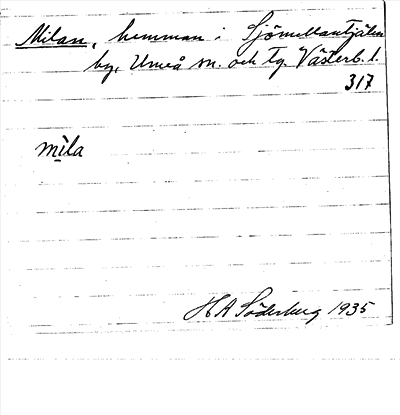 Milan, hemman i Sjömellantjälen
by, Umeå sn. och tg. Västerb. l.
317
mila
H A Söderberg 1935